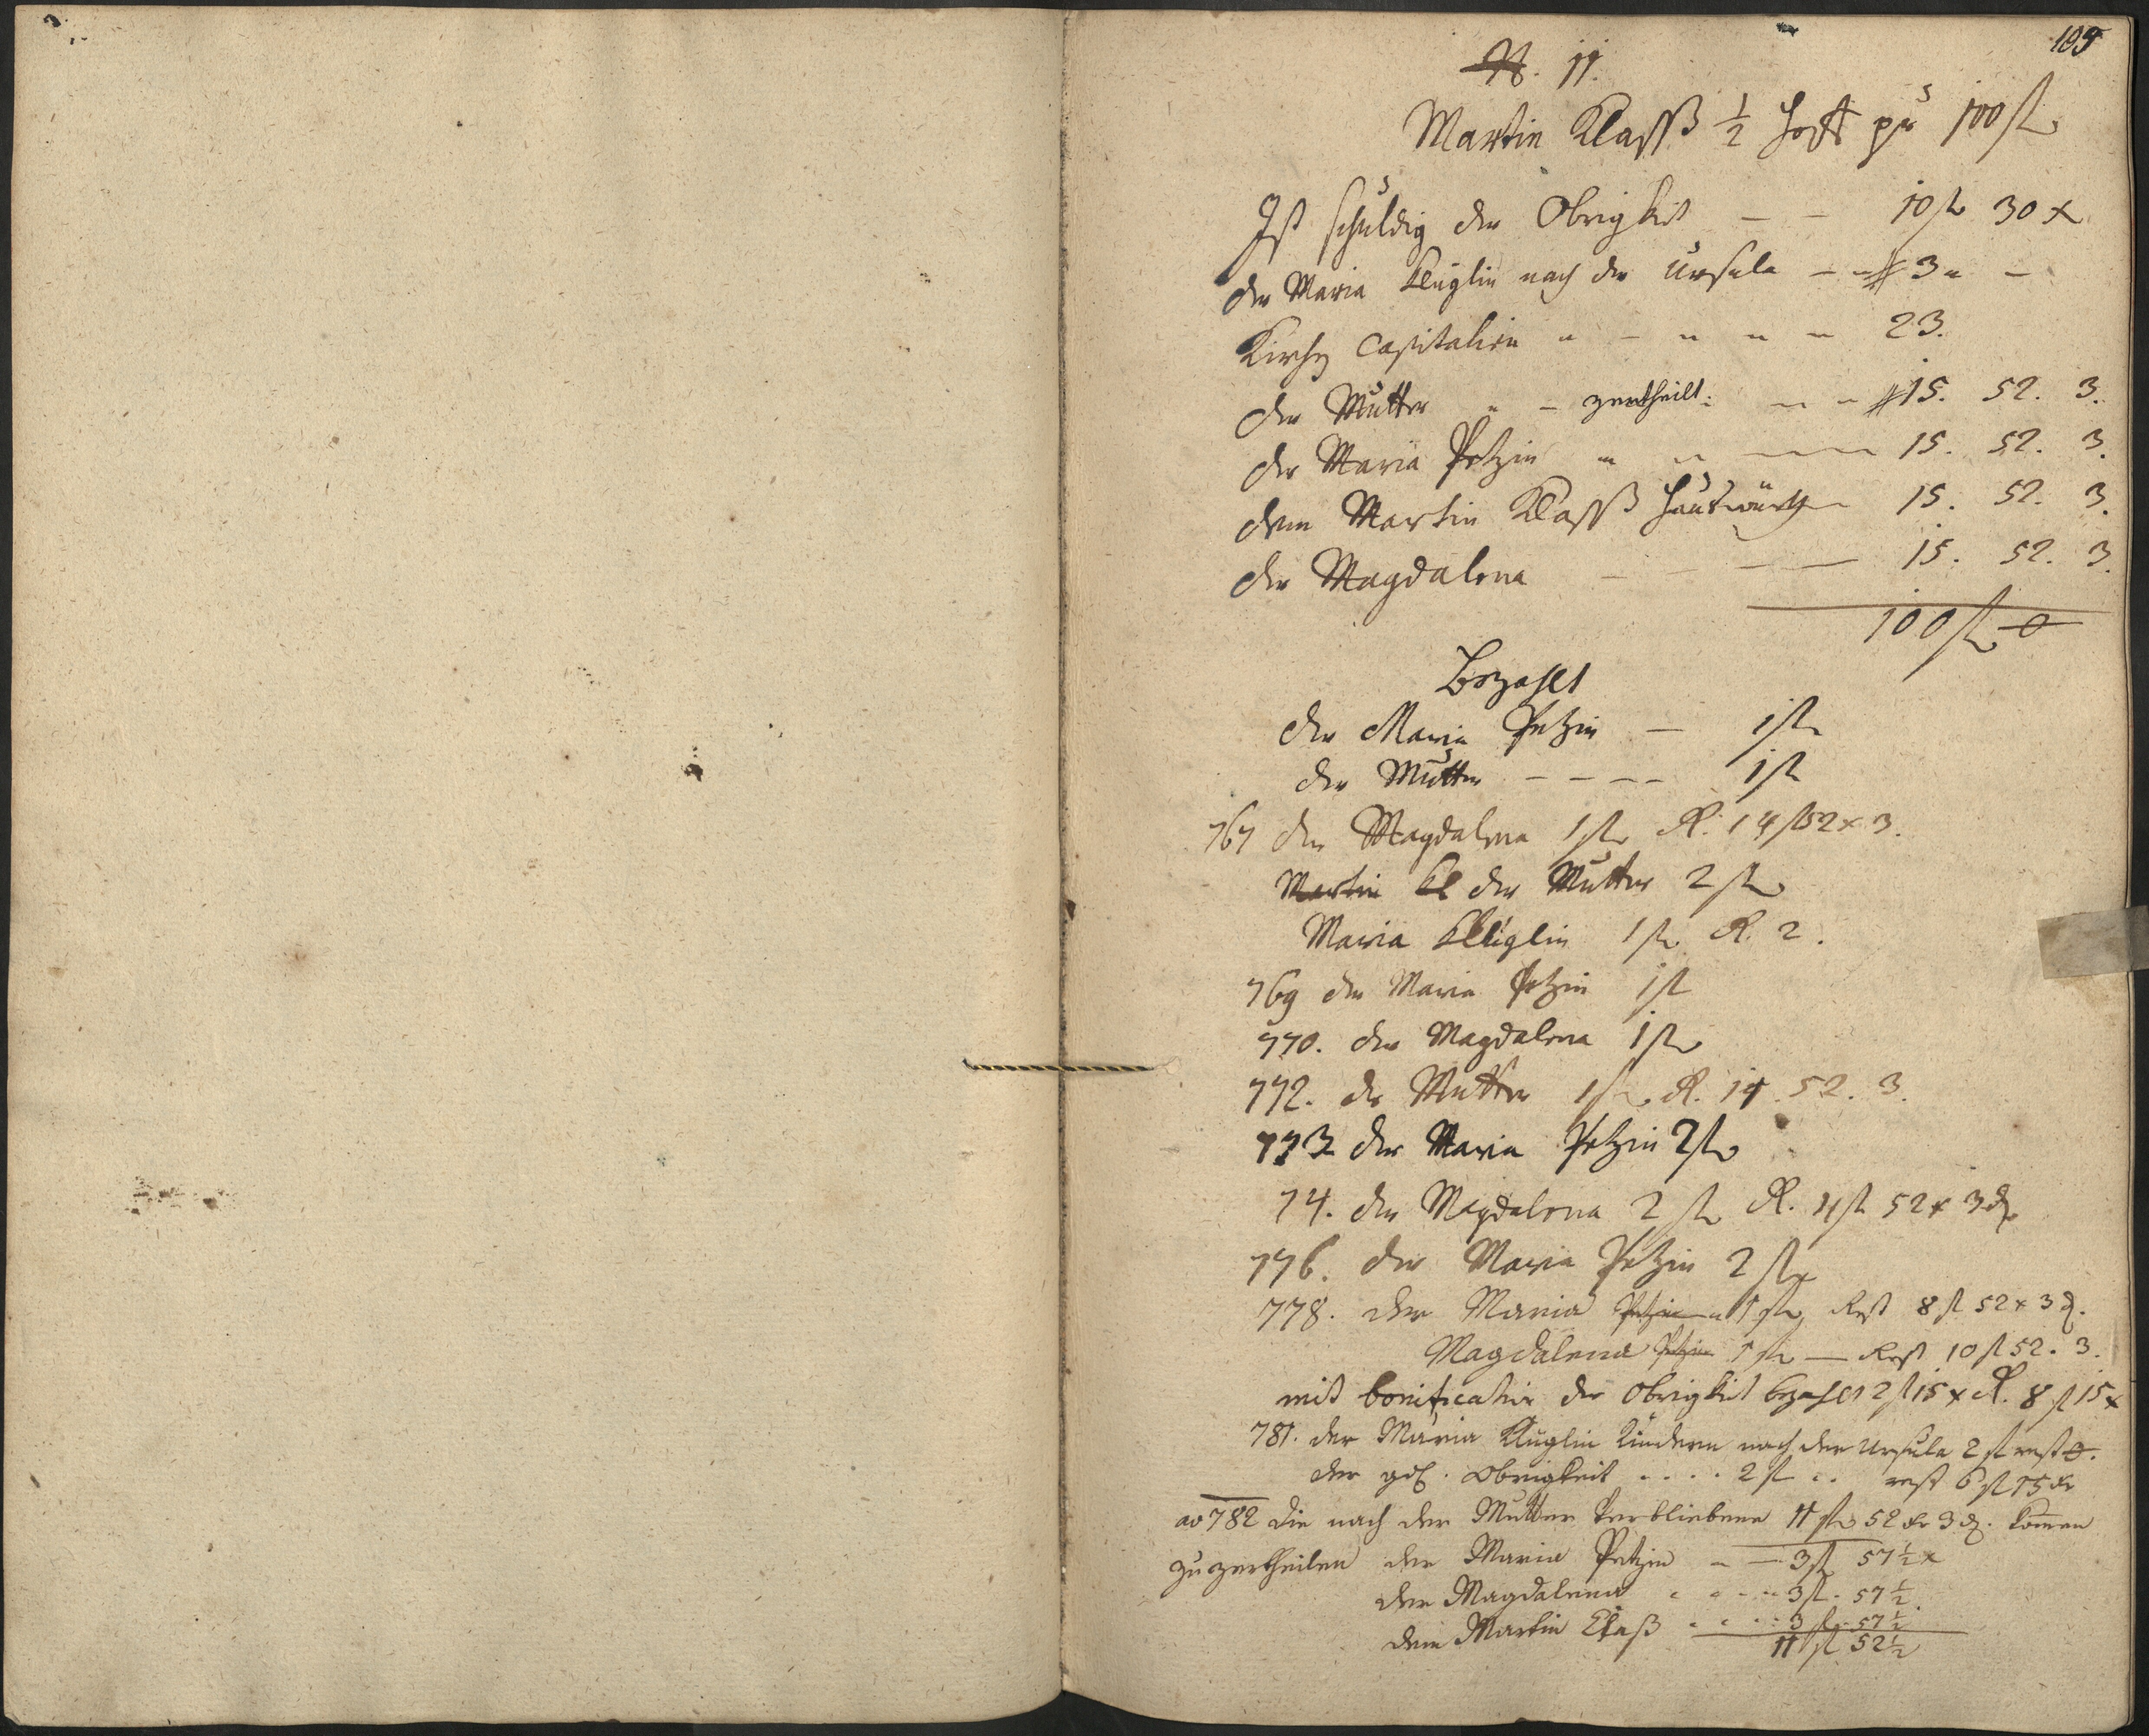 109
N. 11.
Martin Klasß 1/2 Hoff pr 100 fl
Ist schuldig der Obrigkeit — — 10 fl 30 x
der Maria Kluglin nach der Ursula — 3 —
Kirchen Capitalien 23.
der Mutter zertheilt: 15. 52. 3.
der Maria Petzin 15. 52. 3.
dem Martin Klasß Haußwürth 15. 52. 3.
der Magdalena 15. 52. 3.
100 fl 0
Bezahlt
der Maria Petzin — 1 fl
der Mutter — — — — 1 fl
767 der Magdalena 1 fl R. 14 fl 52 x 3.
Martin Kl der Mutter 2 fl
Maria Kluglin 1 fl R. 2.
769 der Maria Petzin 1 fl
770. der Magdalena 1 fl
772. der Mutter 1 fl R. 11. 52. 3.
773 der Maria Petzin 2 fl
74. der Magdalena 2 fl R. 11 fl 52 x 3 d.
776. der Maria Petzin 2 fl
778. der Maria Petzin 1 fl Rest 8 fl 52 x 3 d.
Magdalena Petzin 1 fl — Rest 10 fl 52. 3.
mit bonification der Obrigkeit bezahlt 2 fl 15 x R. 8 fl 15 x
781. der Maria Kluglin Kindern nach der Ursula 2 fl rest 0.
der gdl. Obrigkeit . . . . 2 fl . . rest 6 fl 15 kr
ao 782 die nach der Mutter verbliebene 11 fl 52 kr 3 d. komen
zu zertheilen der Maria Petzin — — 3 fl 57 1/2 x
der Magdalena 3 fl. 57 1/2.
dem Martin Claß 3 fl. 57 1/2
11 fl 52 1/2